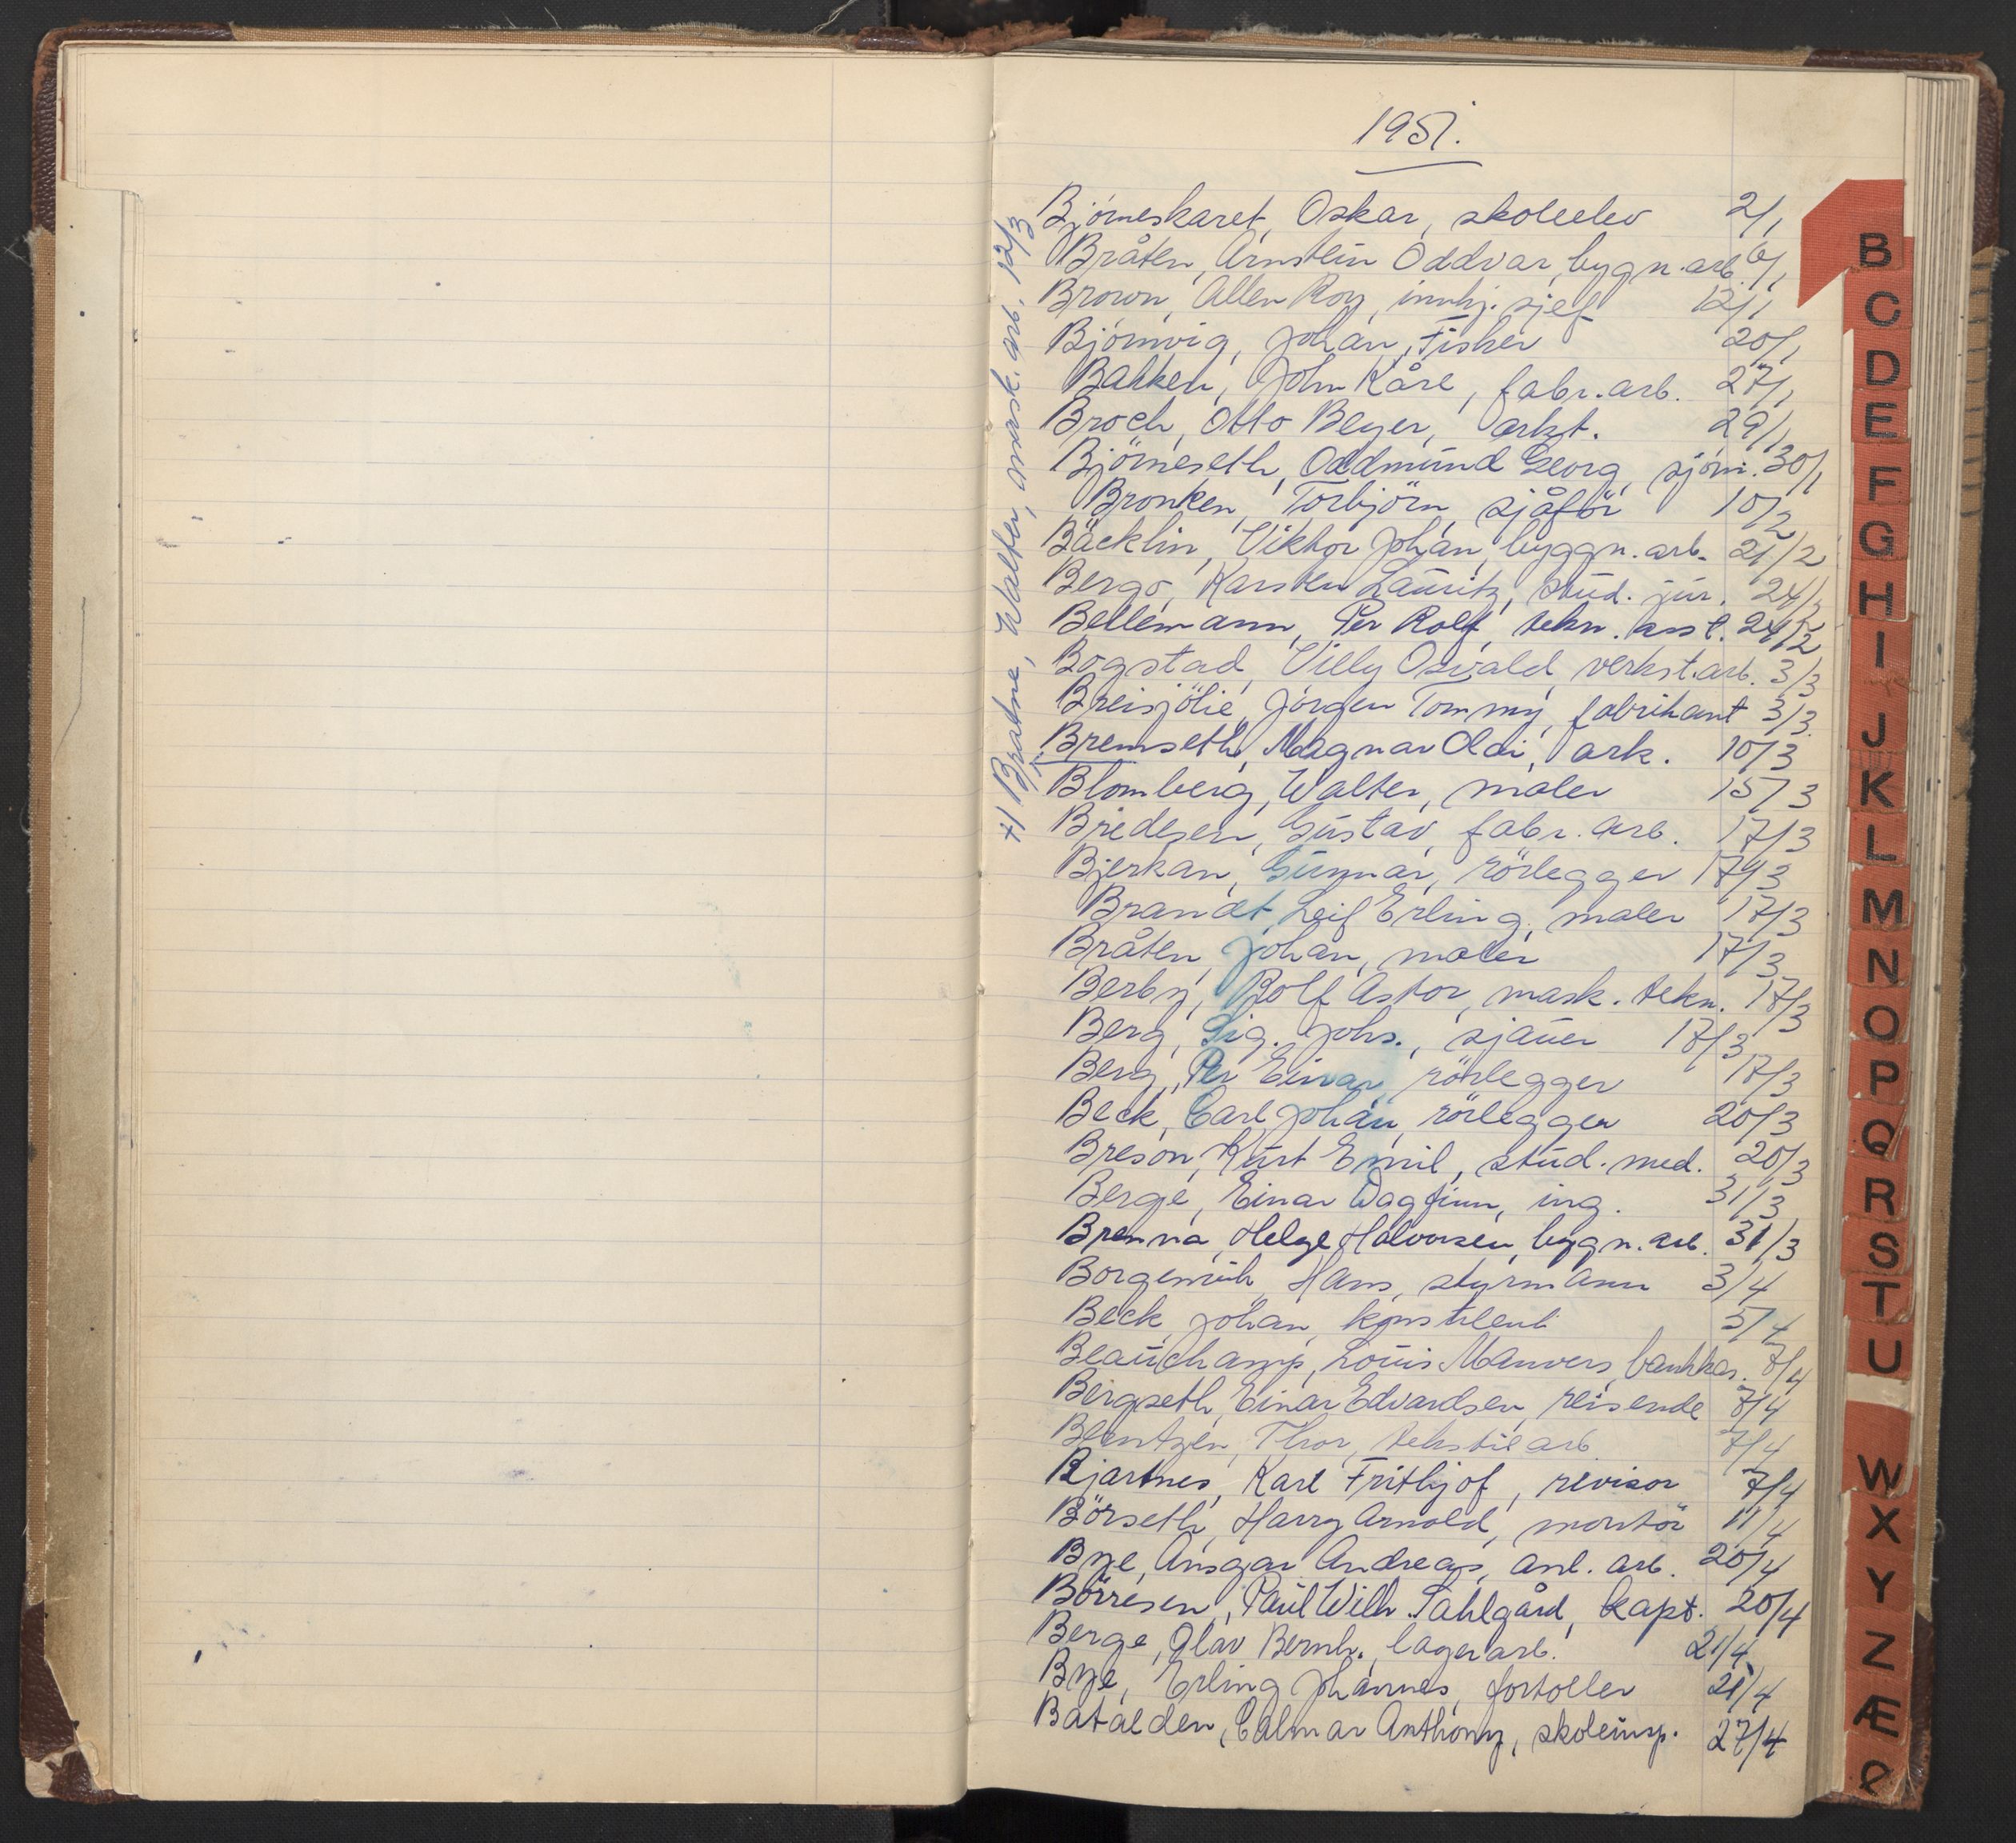 1951.
Bjørneskaret, Oskar, skoleelev 2/1
Bråten, Arnstein Oddvar, bygn.arb. 6/1
Brown, Allen Roy, innkj. sjef 12/1
Bjørnvig, Johan, Fisker 20/1
Bakken, John Kåre, fabr.arb. 27/1
Broch, Otto Beyer, arkt. 29/1
Björneseth, Oddmund Georg, sjöm. 30/1
Bronken, Torbjörn, sjåför 10/2
Bäcklin, Viktor Johan, byggn. arb. 21/2
Bergo, Karsten Lauritz, stud. jur. 24/2
Bellemann, Per Rolf, tekn. asst. 24/2
Bogstad, Villy Osvald, verkst.arb. 3/3
Breisjölie, Jörgen Tommy, fabrikant 3/3
Bremseth, Magnar Olai, ark. 10/3
+) Bratne, Walter, mask. arb. 12/3
Blomberg, Walter, maler 15/3
Bredesen, Gustav, fabr. arb. 17/3
Bjerkan, Gunnar, rörlegger 17/3
Brandt, Leif Erling, maler 17/3
Bråten, Johan, maler 17/3
Berby, Rolf Astor, mask. tekn. 17/3
Berg, Sig. Johs., sjauer 17/3
Berg, Per Einar, rörlegger 17/3
Beck, Carl Johan, rörlegger 20/3
Breson, Kurt Emil, stud. med. 20/3
Berge, Einar Dagfinn, ing. 31/3
Brenna, Helge Halvorsen, bygn. arb. 31/3
Hans, styrmann 3/4
Beck, Johan, 5/4
Beauchamp, Louis Manvers, bankkas. 7/4
Bergseth, Einar Edvardsen, reisende 7/4
Bentzen, Thor, tekstilarb 7/4
Bjartnes, Karl Frithjof, revisor 7/4
Börseth, Harry Arnold, montör 11/4
Bye, Ansgar Andreas, anl. arb. 20/4
Börresen, Paul Wilh. Sahlgård, kapt. 20/4
Berge, Olav Bernh., lagerarb. 21/4
Bye, Erling Johannes, fortoller 21/4
Batalden, Calmar Anthony, skoleinsp. 27/4
B
C
D
E
F
G
H
I
J
K
L
M
N
O
P
Q
R
S
T
U
W
X
Y
Z
Æ